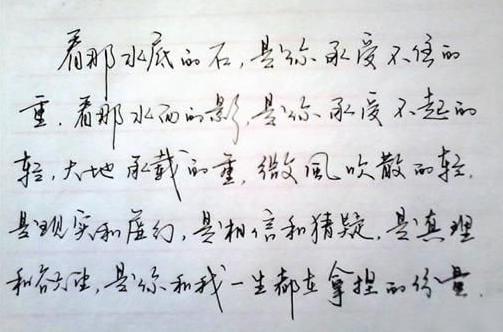 看那水底的石,是你承受不住的
重.看那水面的影,是你承受不起的
轻,大地承载的重,微风吹散的轻.
是现实和虚幻,是相信和猜疑,是真理
和欲望,是你和我一生都在拿捏的份量.